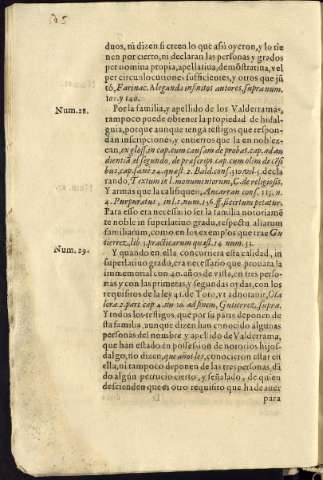 duos, ni dizen si creen lo que assi oyeron, y lo tie
nen por cierto, ni declaran las personas y grados
per nomina propia, apellatiua, demõstratiua, vel
per circunlocutiones sufficientes, y otros que jũ
tò, Farinac. Alegando infinitos autores, supra num.
101. y 140.
Num. 28.
Por la familia, y apellido de los Valderramas,
tampoco puede obtener la propiedad de hidal-
guia, porque aunque tenga testigos que respon-
dan inscripciones, y entierros que la en noblez-
can, ex gloss. in cap. cum causam de probat. cap. ad au
dientiã el segundo, de præscrip. cap. cum olim de cẽsi
bus, cap. sanè 24. quæst. 2. Bald. cons. 310. vol. 5. decla
rando, Textum in l. monumentorum, C. de religiosis.
Y armas que la califiquen, Ancarran cons. 115. n.
4. Purpuratus, in l. 1. num. 156. ff. si certum petatur.
Para esso era necessario ser la familia notoriamẽ
te noble in superlatiuo gradu, respectu aliarum
familiarum, como en los exemplos que trae Gu
tierrez, lib. 3. practicarum quæst. 14. num. 51.
Num. 29.
Y quando en ella concurriera esta calidad, in
superlatiuo gradu, era necessario que prouara la
immemorial con 40. años de vista, en tres perso-
nas y con las primeras y segundas oydas, con los
requisitos de la ley 41. de Toro, vt adnotauit, Ota
lora 2. part. cap. 4. nu. 10. ad finem. Gutierrez, supra.
Y todos los testigos, que por su parte deponen de
sta familia, aunque dizen han conocido algunas
personas del nombre y apellido de Valderrama,
que han estado en possession de notorios hijos-
dalgo, no dizen, que años les, conocieron estar en
ella, ni tampoco deponen de las tres personas, dã
do algun petrucio cierto, y señalado, de quien
descienden que es otro requisito que ha de auer
para